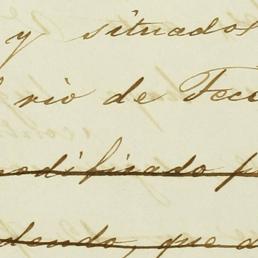 y situados
rio de Tece
modificado p
tendo, que d